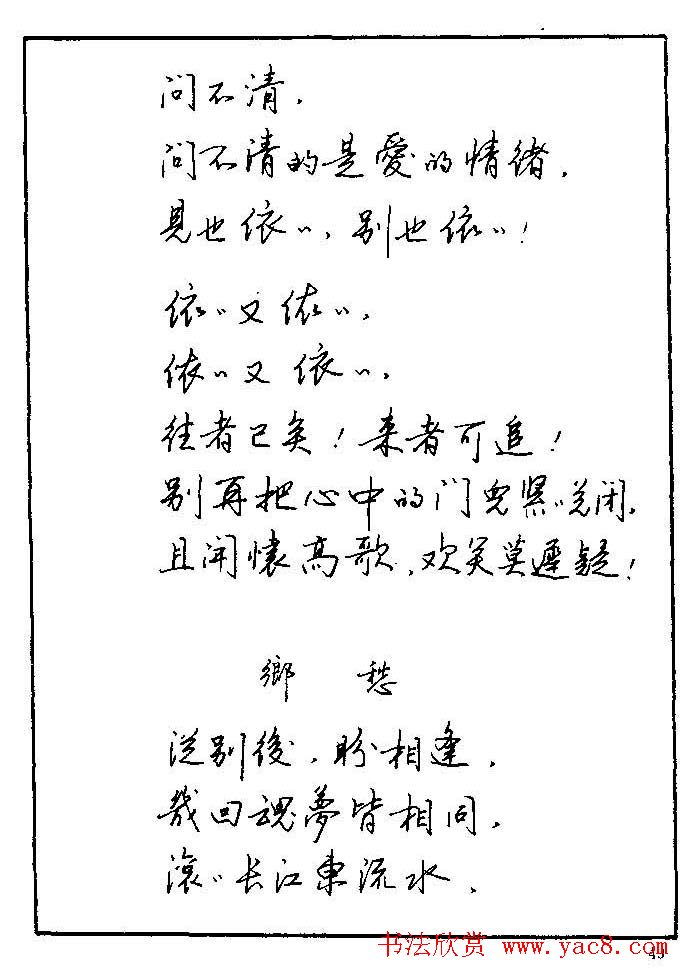 问不清，
问不清的是愛的情绪，
見也依〻，别也依〻！
依〻又依〻，
依〻又依〻，
往者已矣！来者可追！
别再把心中的门兒紧〻关闭，
且闲懷高歌，欢笑莫遲疑！
鄉 愁
从别後，盼相逢，
幾回魂夢皆相同，
滾〻长江東流水，
书法欣赏 www.yac8.com
49